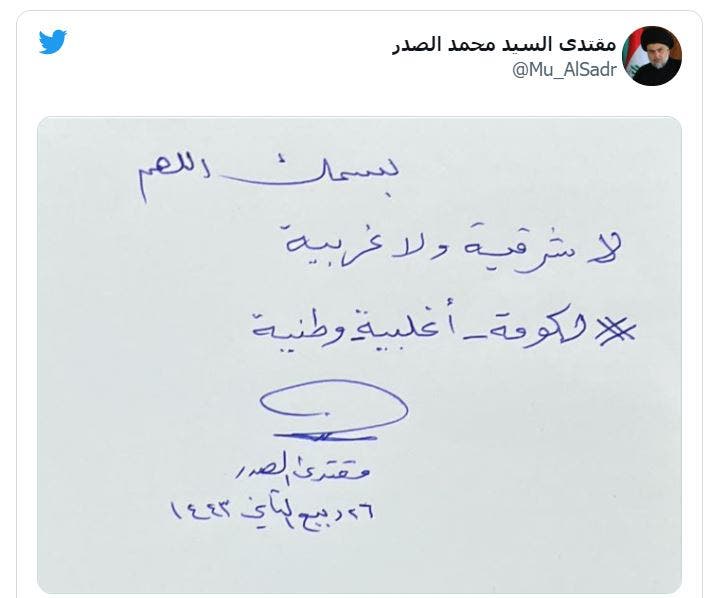 مقتدى السيد محمد الصدر
@Mu_AlSadr
بسمك اللهم
لا شرقية ولا غربية
#حكومة_أغلبية_وطنية
مقتدى الصدر
٢٦ ربيع الثاني ١٤٤٣